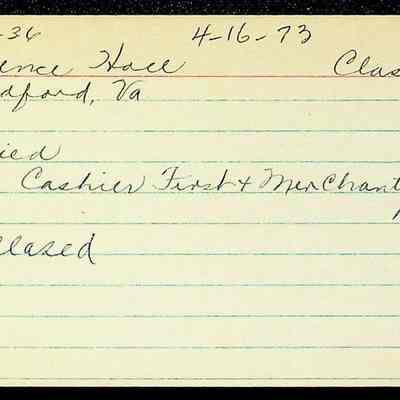 -36 4-16-73
ence Hall Clas
dford, Va
ied
Cashier First + Merchant
lased